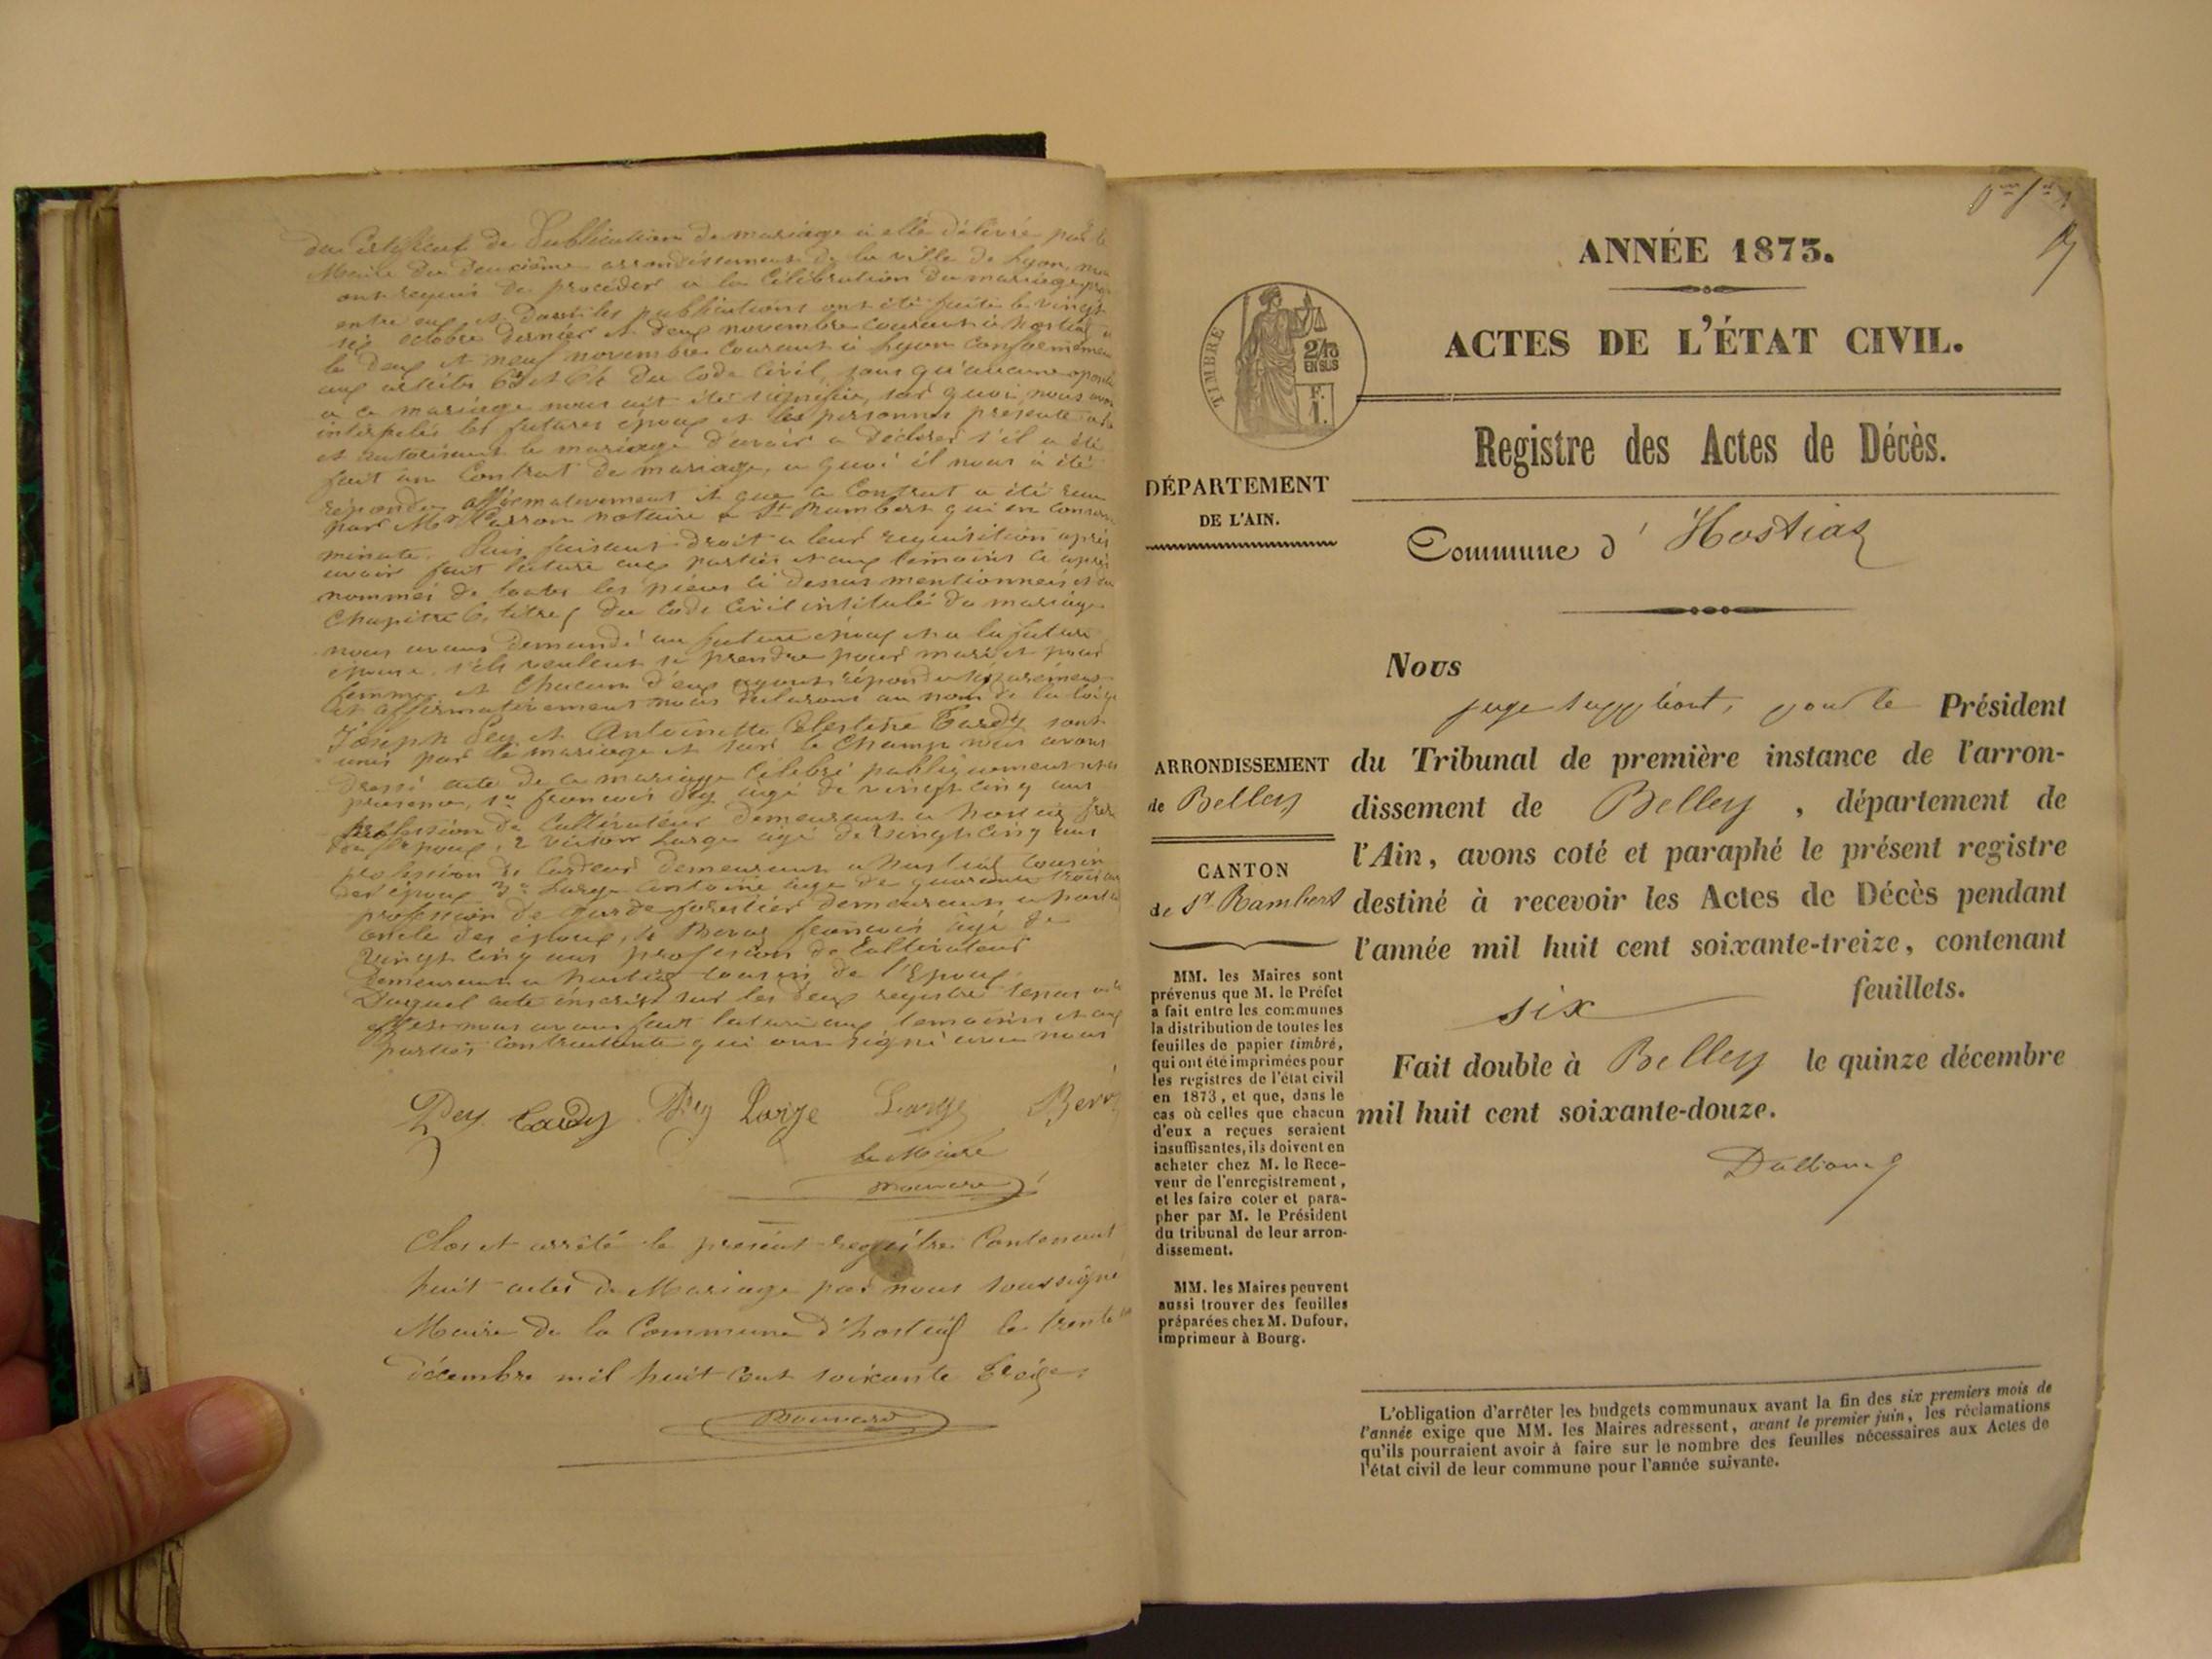 du Certificat de Publication de mariage à elle délivré par le
Maire du deuxième arrondissement de la ville de Lyon, nous
ont requis de procéder a la Célébration du mariage
entre eux et dont les publications ont été faites le vingt
six octobre dernier et deux novembre courant à hostiaz
le deux et neuf novembre courant à Lyon Conformément
aux articles 63 et 64 du Code Civil, sans qu'aucune
a ce mariage nous ait été signifiée, sur quoi nous avons
interpelés les futures époux et les personnes présente
et autorisant le mariage d'avoir a déclarer s'il a été
fait un Contrat de mariage, a quoi il nous a été
répondu affirmativement et que ce Contrat a été reçu
par Mr Carron notaire a St Rambert qui en conserve
minute. Puis faisant droit a leur requisition après
avoir fait lecture aux parties et aux temoins ci après
nommés de toutes les pièces ci dessus mentionnées et du
Chapitre 6, titre 5 du Code Civil intitulé du mariage
nous avons demandé au future époux et a la future
épouse, s'ils veulent se prendre pour mari et pour
femme, et Chacun d'eux ayant répondu séparément
et affirmativement nous déclarons au nom de la loi que
Joseph Pey et Antoinette Célestine Tardy sont
unis par le mariage et sur le Champ nous avons
dressé acte de ce mariage Célébré publiquement
présence, 1° françois Pey agé de vingt cinq ans
profession de Cultivateur demeurant a hostiaz frère
époux, 2 victor Large agé de vingt cinq ans
profession de Cardeur demeurant a hostiaz Cousin
des époux 3° Large Antoine agé de quarante trois ans
profession de garde forestier demeurant a hostiaz
oncle des époux, 4 françois agé de
vingt cinq ans profession de Cultivateur
demeurant a hostiaz cousin de l'Epoux.
Duquel acte inscrit sur les deux registre tenus
nous avons fait lecture aux temoins et aux
parties Contractante qui ont signé avec nous
Pey Tardy Pey Large Large
le Maire
Clos et arrêté le présent regsitre Contenant
huit actes de Mariage par nous soussigné
Maire de la Commune d'hostiaz le trente
décembre mil huit Cent soixante treize.
ANNÉE 1873.
ACTES DE L'ÉTAT CIVIL.
TIMBRE
2/10
EN SUS
F.
1.
Registre des Actes de Décès.
DÉPARTEMENT
DE L'AIN.
Commune d' Hostiaz
Nous
juge suppléant, pour le Président
du Tribunal de première instance de l'arron-
dissement de Belley , département de
l'Ain, avons coté et paraphé le présent registre
destiné à recevoir les Actes de Décès pendant
l'année mil huit cent soixante-treize, contenant
six feuillets.
Fait double à Belley le quinze décembre
mil huit cent soixante-douze.
ARRONDISSEMENT
de Belley
CANTON
de St Rambert
MM. les Maires sont
prévenus que M. le Préfet
a fait entre les communes
la distribution de toutes les
feuilles de papier timbré,
qui ont été imprimées pour
les registres de l'état civil
en 1873, et que, dans le
cas où celles que chacun
d'eux a reçues seraient
insuffisantes, ils doivent en
acheter chez M. le Rece-
veur de l'enregistrement,
et les faire coter et para-
pher par M. le Président
du tribunal de leur arron-
dissement.
MM. les Maires peuvent
aussi trouver des feuilles
préparées chez M. Dufour,
imprimeur à Bourg.
L'obligation d'arrêter les budgets communaux avant la fin des six premiers mois de
l'année exige que MM. les Maires adressent, avant le premier juin, les réclamations
qu'ils pourraient avoir à faire sur le nombre des feuilles nécessaires aux Actes de
l'état civil de leur commune pour l'année suivante.